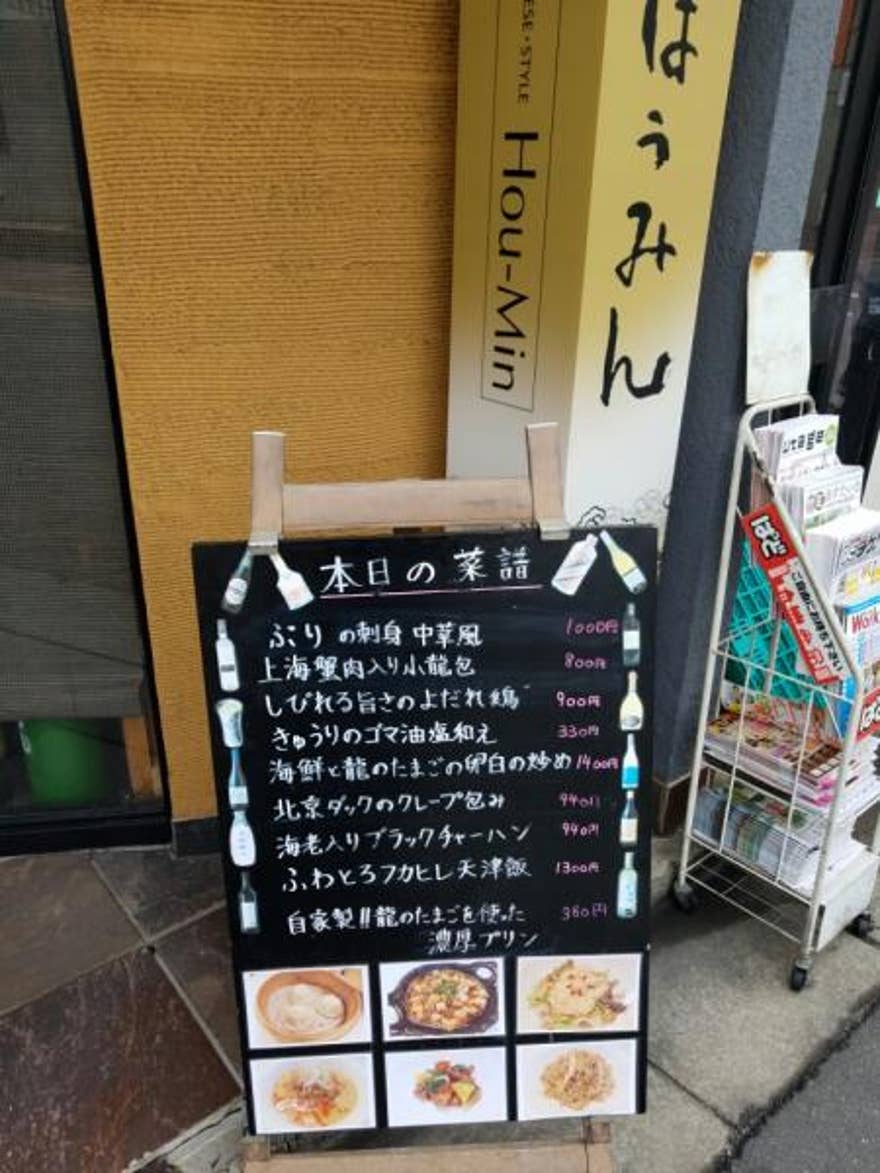 ESE・STYLE
Hou-Min
ほぅみん
本日の菜譜
ぶりの刺身 中華風 1000円
上海蟹肉入り小龍包 800円
しびれる旨さのよだれ鶏 900円
きゅうりのゴマ油塩和え 330円
海鮮と龍のたまごの卵白の炒め 1400円
北京ダックのクレープ包み 940円
海老入りブラックチャーハン 990円
ふわとろフカヒレ天津飯 1300円
自家製!!龍のたまごを使った 380円
濃厚プリン
ぱど
ご自由にお持ち下さい
Work
ぱど